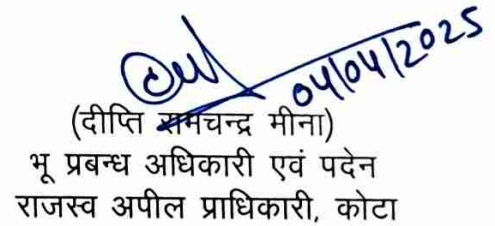 04/04/2025
(दीप्ति रामचन्द्र मीना)
भू प्रबन्ध अधिकारी एवं पदेन
राजस्व अपील प्राधिकारी, कोटा